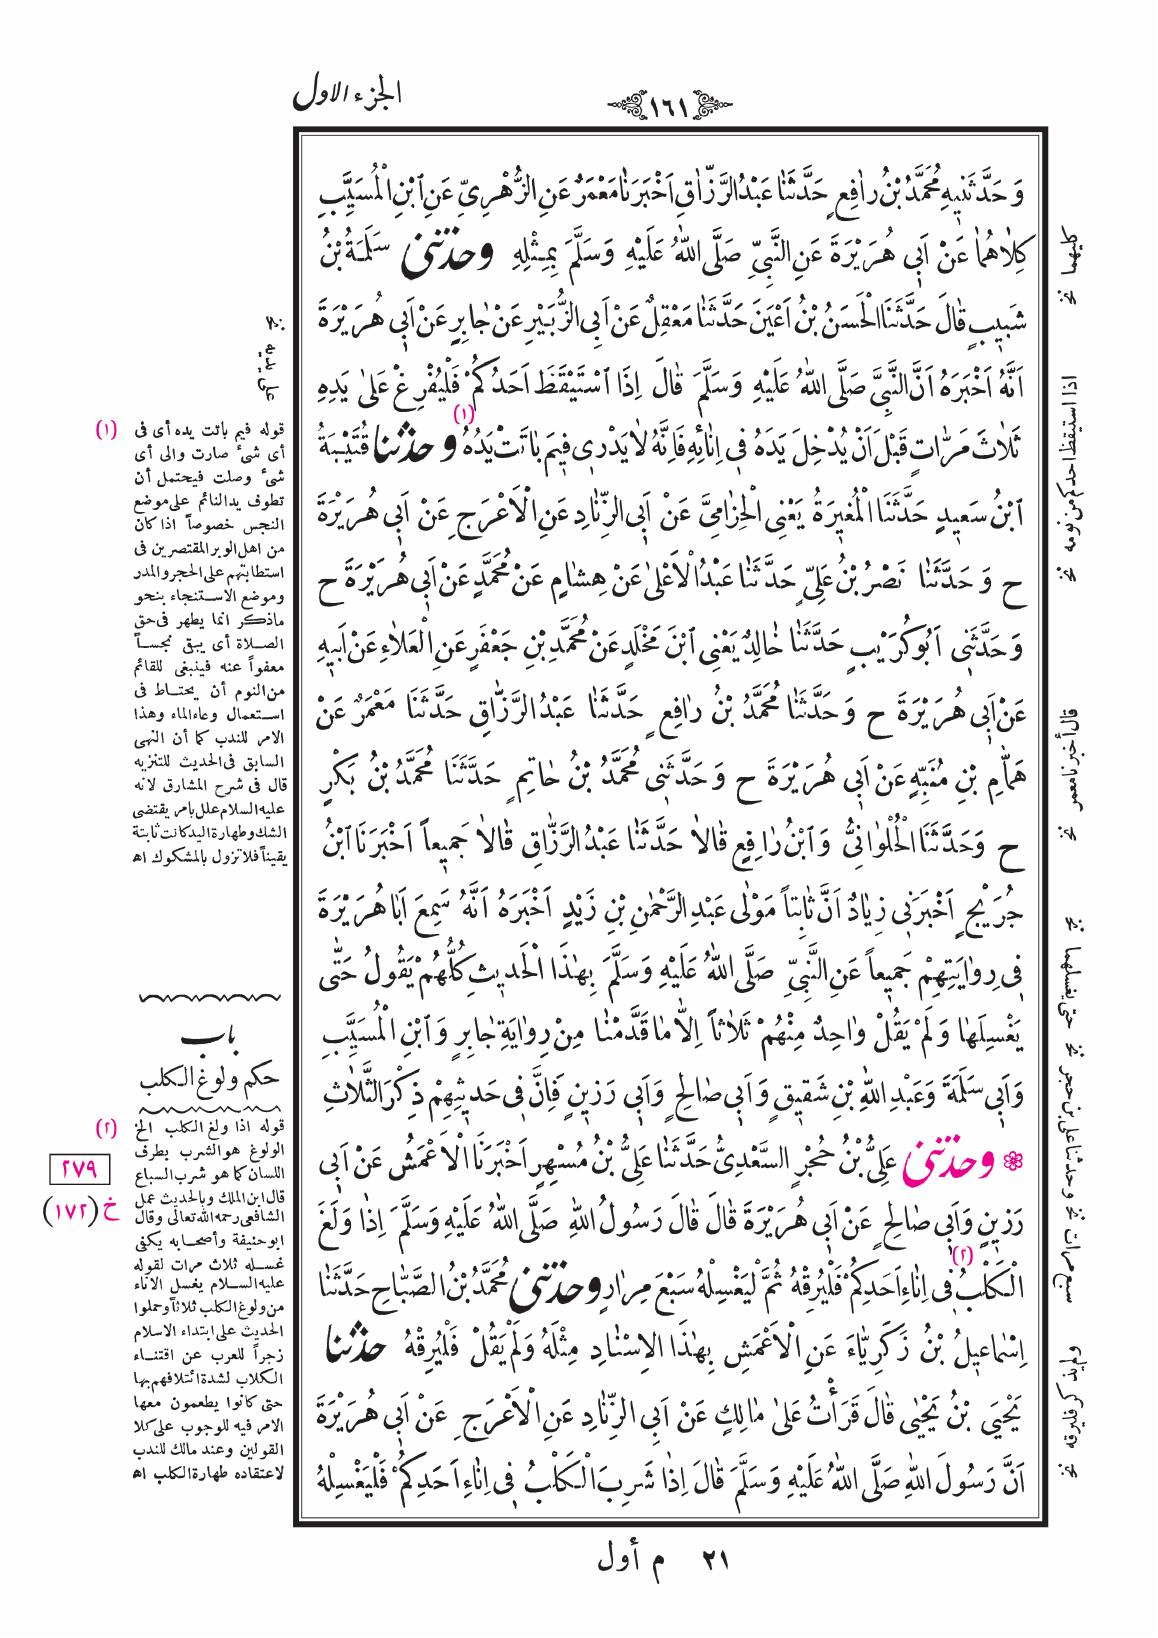 الجزء الاول
١٦١
وَحَدَّثَنِيهِ مُحَمَّدُ بْنُ رَافِعٍ حَدَّثَنَا عَبْدُ الرَّزَّاقِ اَخْبَرَنَا مَعْمَرٌ عَنِ الزُّهْرِىِّ عَنِ ابْنِ الْمُسَيَّبِ
كِلَاهُمَا عَنْ اَبِى هُرَيْرَةَ عَنِ النَّبِىِّ صَلَّى اللهُ عَلَيْهِ وَسَلَّمَ بِمِثْلِهِ وحدثنى سَلَمَةُ بْنُ
شَبِيبٍ قَالَ حَدَّثَنَا الْحَسَنُ بْنُ اَعْيَنَ حَدَّثَنَا مَعْقِلٌ عَنْ اَبِى الزُّبَيْرِ عَنْ جَابِرٍ عَنْ اَبِى هُرَيْرَةَ
اَنَّهُ اَخْبَرَهُ اَنَّ النَّبِىَّ صَلَّى اللهُ عَلَيْهِ وَسَلَّمَ قَالَ اِذَا اسْتَيْقَظَ اَحَدُكُمْ فَلْيُفْرِغْ عَلَى يَدِهِ
ثَلَاثَ مَرَّاتٍ قَبْلَ اَنْ يُدْخِلَ يَدَهُ فِى اِنَائِهِ فَاِنَّهُ لَا يَدْرِى فِيمَ بَاتَتْ يَدُهُ (١) وحدثنا قُتَيْبَةُ
ابْنُ سَعِيدٍ حَدَّثَنَا الْمُغِيرَةُ يَعْنِى الْحِزَامِىَّ عَنْ اَبِى الزِّنَادِ عَنِ الْاَعْرَجِ عَنْ اَبِى هُرَيْرَةَ
ح وَحَدَّثَنَا نَصْرُ بْنُ عَلِىٍّ حَدَّثَنَا عَبْدُ الْاَعْلَى عَنْ هِشَامٍ عَنْ مُحَمَّدٍ عَنْ اَبِى هُرَيْرَةَ ح
وَحَدَّثَنِى اَبُو كُرَيْبٍ حَدَّثَنَا خَالِدٌ يَعْنِى ابْنَ مَخْلَدٍ عَنْ مُحَمَّدِ بْنِ جَعْفَرٍ عَنِ الْعَلَاءِ عَنْ اَبِيهِ
عَنْ اَبِى هُرَيْرَةَ ح وَحَدَّثَنَا مُحَمَّدُ بْنُ رَافِعٍ حَدَّثَنَا عَبْدُ الرَّزَّاقِ حَدَّثَنَا مَعْمَرٌ عَنْ
هَمَّامِ بْنِ مُنَبِّهٍ عَنْ اَبِى هُرَيْرَةَ ح وَحَدَّثَنِى مُحَمَّدُ بْنُ حَاتِمٍ حَدَّثَنَا مُحَمَّدُ بْنُ بَكْرٍ
ح وَحَدَّثَنَا الْحُلْوَانِىُّ وَابْنُ رَافِعٍ قَالَا حَدَّثَنَا عَبْدُ الرَّزَّاقِ قَالَا جَمِيعاً اَخْبَرَنَا ابْنُ
جُرَيْجٍ اَخْبَرَنِى زِيَادٌ اَنَّ ثَابِتاً مَوْلَى عَبْدِ الرَّحْمٰنِ بْنِ زَيْدٍ اَخْبَرَهُ اَنَّهُ سَمِعَ اَبَا هُرَيْرَةَ
فِى رِوَايَتِهِمْ جَمِيعاً عَنِ النَّبِىِّ صَلَّى اللهُ عَلَيْهِ وَسَلَّمَ بِهٰذَا الْحَدِيثِ كُلُّهُمْ يَقُولُ حَتَّى
يَغْسِلَهَا وَلَمْ يَقُلْ وَاحِدٌ مِنْهُمْ ثَلَاثاً اِلَّا مَا قَدَّمْنَا مِنْ رِوَايَةِ جَابِرٍ وَابْنِ الْمُسَيَّبِ
وَاَبِى سَلَمَةَ وَعَبْدِ اللهِ بْنِ شَقِيقٍ وَاَبِى صَالِحٍ وَاَبِى رَزِينٍ فَاِنَّ فِى حَدِيثِهِمْ ذِكْرَ الثَّلَاثِ
وحدثنى عَلِىُّ بْنُ حُجْرٍ السَّعْدِىُّ حَدَّثَنَا عَلِىُّ بْنُ مُسْهِرٍ اَخْبَرَنَا الْاَعْمَشُ عَنْ اَبِى
رَزِينٍ وَاَبِى صَالِحٍ عَنْ اَبِى هُرَيْرَةَ قَالَ قَالَ رَسُولُ اللهِ صَلَّى اللهُ عَلَيْهِ وَسَلَّمَ اِذَا وَلَغَ
الْكَلْبُ (٢) فِى اِنَاءِ اَحَدِكُمْ فَلْيُرِقْهُ ثُمَّ لْيَغْسِلْهُ سَبْعَ مِرَارٍ وحدثنى مُحَمَّدُ بْنُ الصَّبَّاحِ حَدَّثَنَا
اِسْمَاعِيلُ بْنُ زَكَرِيَّاءَ عَنِ الْاَعْمَشِ بِهٰذَا الْاِسْنَادِ مِثْلَهُ وَلَمْ يَقُلْ فَلْيُرِقْهُ حدثنا
يَحْيَى بْنُ يَحْيَى قَالَ قَرَأْتُ عَلَى مَالِكٍ عَنْ اَبِى الزِّنَادِ عَنِ الْاَعْرَجِ عَنْ اَبِى هُرَيْرَةَ
اَنَّ رَسُولَ اللهِ صَلَّى اللهُ عَلَيْهِ وَسَلَّمَ قَالَ اِذَا شَرِبَ الْكَلْبُ فِى اِنَاءِ اَحَدِكُمْ فَلْيَغْسِلْهُ
كليهما نخ
اذا استيقظ احدكم من نومه نخ
قال أخبرنا معمر نخ
حتى يغسلها نخ
وحدثنا على بن حجر نخ
سبع مرات نخ
ولم يذكر فليرقه نخ
على يديه نخ
(١) قوله فيم باتت يده أى فى
أى شىء صارت والى أى
شىء وصلت فيحتمل أن
تطوف يد النائم على موضع
النجس خصوصاً اذا كان
من اهل الوبر المقتصرين فى
استطابتهم على الحجر والمدر
وموضع الاستنجاء بنحو
ماذكر انما يطهر فى حق
الصلاة أى يبقى نجساً
معفواً عنه فينبغى للقائم
من النوم أن يحتاط فى
استعمال وعاء الماء وهذا
الامر للندب كما أن النهى
السابق فى الحديث للتنزيه
قال فى شرح المشارق لانه
عليه السلام علل بامر يقتضى
الشك وطهارة اليد كانت ثابتة
يقيناً فلا تزول بالمشكوك اه
باب
حكم ولوغ الكلب
(٢) قوله اذا ولغ الكلب الخ
الولوغ هو الشرب بطرف
اللسان كما هو شرب السباع
قال ابن الملك وبالحديث عمل
الشافعى رحمه الله تعالى وقال
ابوحنيفة وأصحابه يكفى
غسله ثلاث مرات لقوله
عليه السلام يغسل الاناء
من ولوغ الكلب ثلاثاً وحملوا
الحديث على ابتداء الاسلام
زجراً للعرب عن اقتناء
الكلاب لشدة ائتلافهم بها
حتى كانوا يطعمون معها
الامر فيه للوجوب على كلا
القولين وعند مالك للندب
لاعتقاده طهارة الكلب اه
٢٧٩
خ (١٧٢)
٢١ م أول